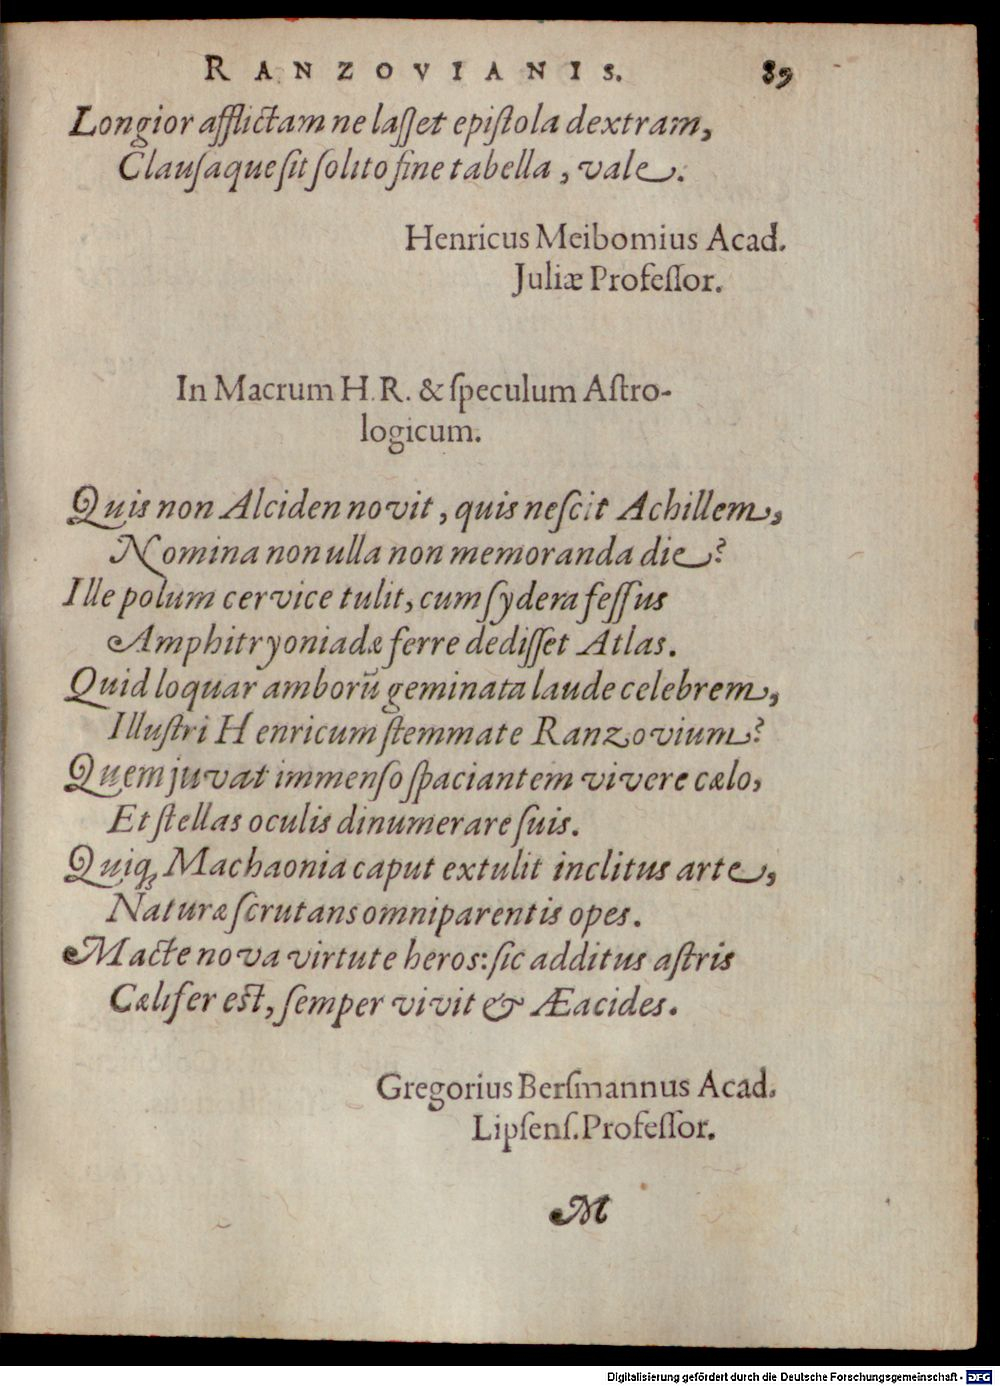 RANZOVIANIS. 89
Longior afflictam ne laſſet epiſtola dextram,
Clauſaque ſit ſolito fine tabella, vale.
Henricus Meibomius Acad.
Juliæ Profeſſor.
In Macrum H. R. & ſpeculum Aſtro-
logicum.
Quis non Alciden novit, quis neſcit Achillem,
Nomina non ulla non memoranda die?
Ille polum cervice tulit, cum ſydera feſſus
Amphitryoniadæ ferre dediſſet Atlas.
Quid loquar amborū geminata laude celebrem,
Illuſtri Henricum ſtemmate Ranzovium?
Quem juvat immenſo ſpaciantem vivere cælo,
Et ſtellas oculis dinumerare ſuis.
Quiq; Machaonia caput extulit inclitus arte,
Naturæ ſcrutans omniparentis opes.
Macte nova virtute heros: ſic additus aſtris
Cælifer eſt, ſemper vivit & Æacides.
Gregorius Berſmannus Acad.
Lipſenſ. Profeſſor.
M
Digitalisierung gefördert durch die Deutsche Forschungsgemeinschaft - DFG